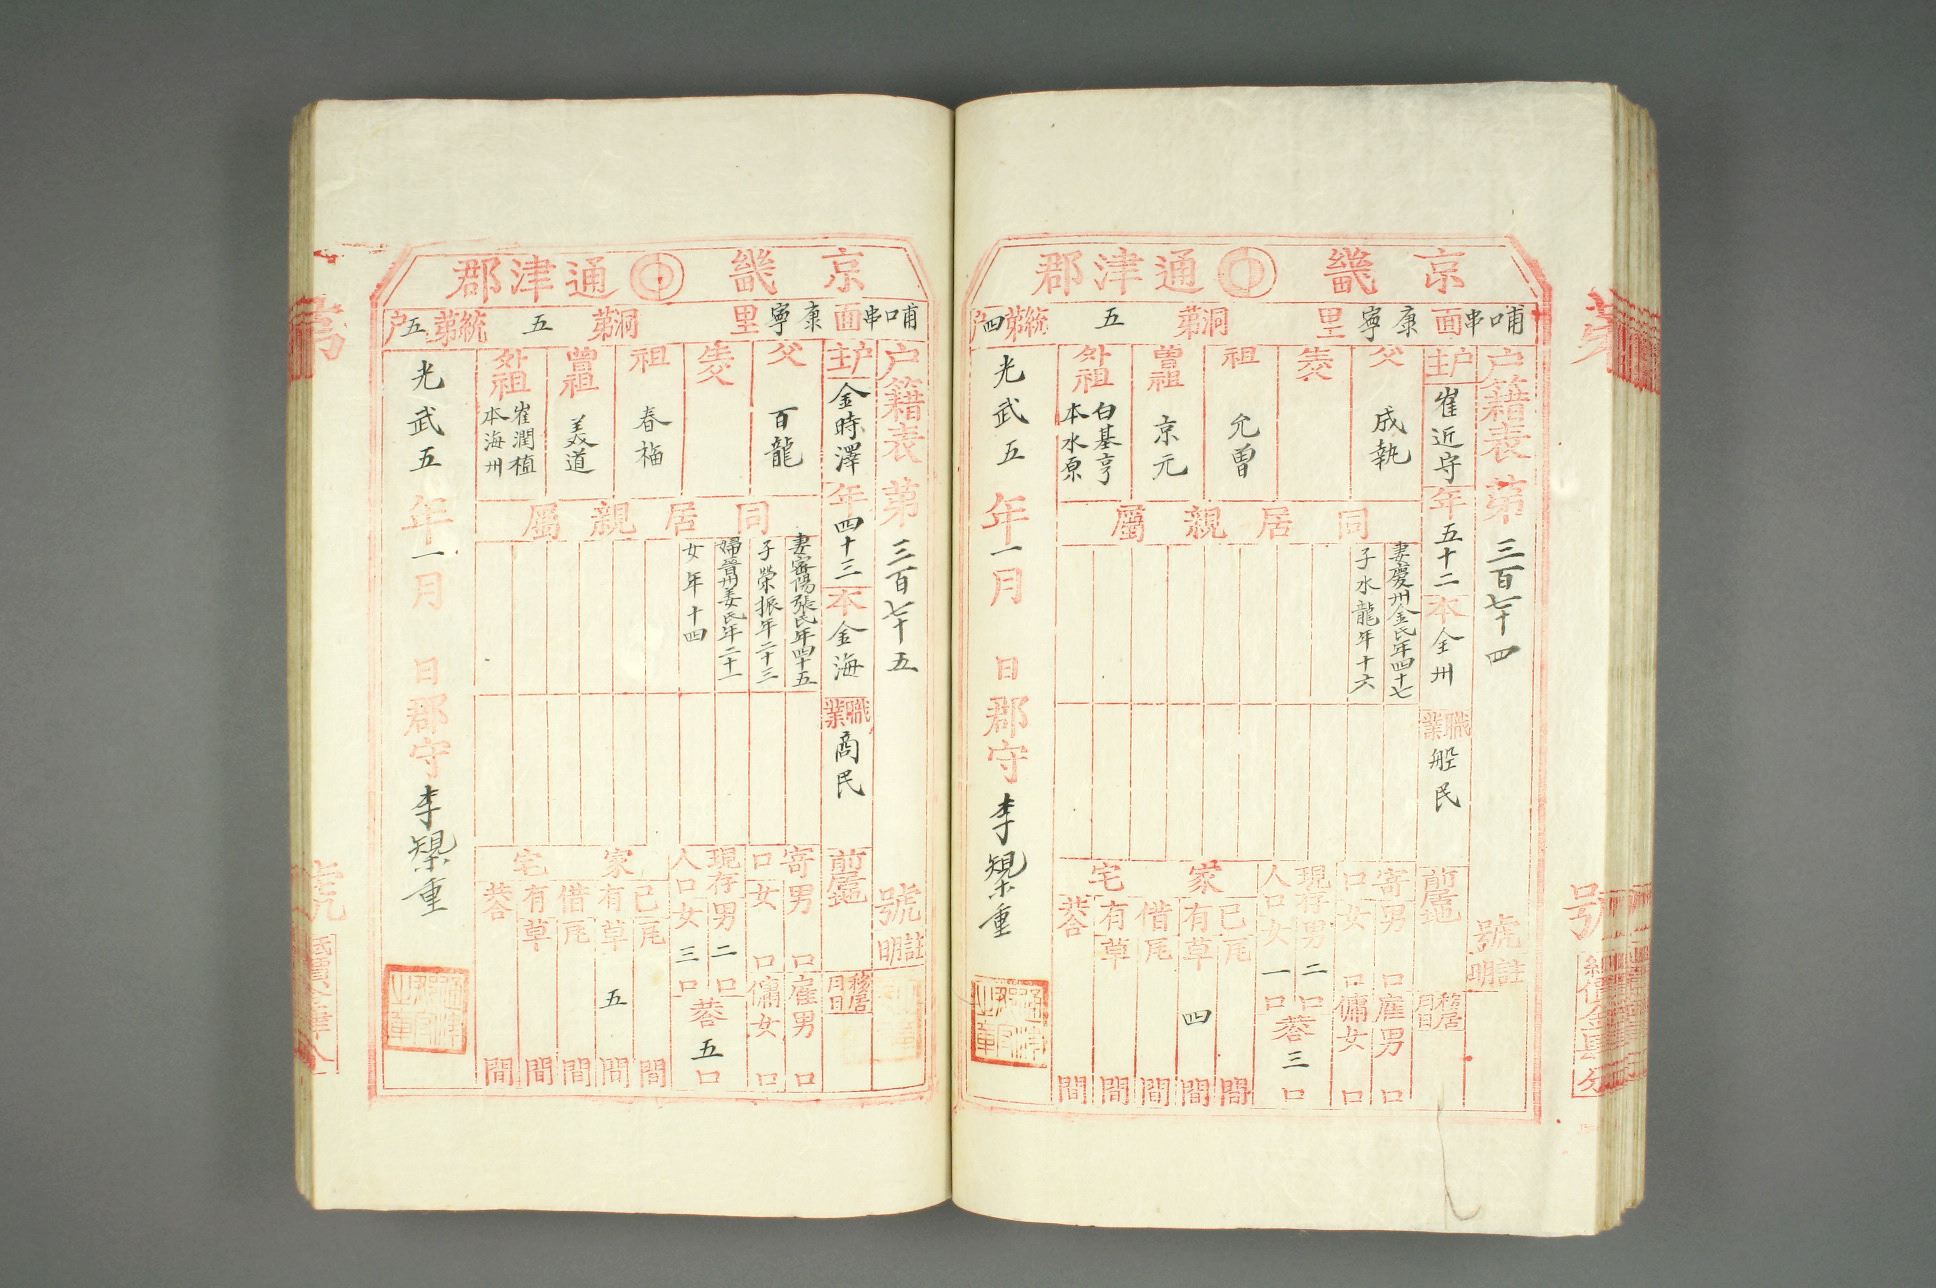 京畿 通津郡
哺口串面 康寧里 洞第五統第四户
户籍表 第三百七十四號
註明
户主 崔近守 年五十二 本全州 職業 船民 前居地
移居月日
父 成執
生父
祖 允曾
曾祖 京元
外祖 白基亨 本水原
同居親屬
妻慶州金氏年四十七
子水龍年十六
寄口 男口 女口
雇男口 傭女口
現存人口 男二口 女一口
共三口
家宅
己有 瓦間
草四間
借有 瓦間
草間
共間
光武五年一月 日郡守李榘重
京畿 通津郡
哺口串面 康寧里 洞第五統第五户
户籍表 第三百七十五號
註明
户主 金時澤 年四十三 本金海 職業 商民 前居地
移居月日
父 百龍
生父
祖 春梅
曾祖 美道
外祖 崔潤植 本海州
同居親屬
妻密陽張氏年四十五
子榮振年二十三
婦晉州姜氏年二十一
女年十四
寄口 男口 女口
雇男口 傭女口
現存人口 男二口 女三口
共五口
家宅
己有 瓦間
草五間
借有 瓦間
草間
共間
光武五年一月 日郡守李榘重